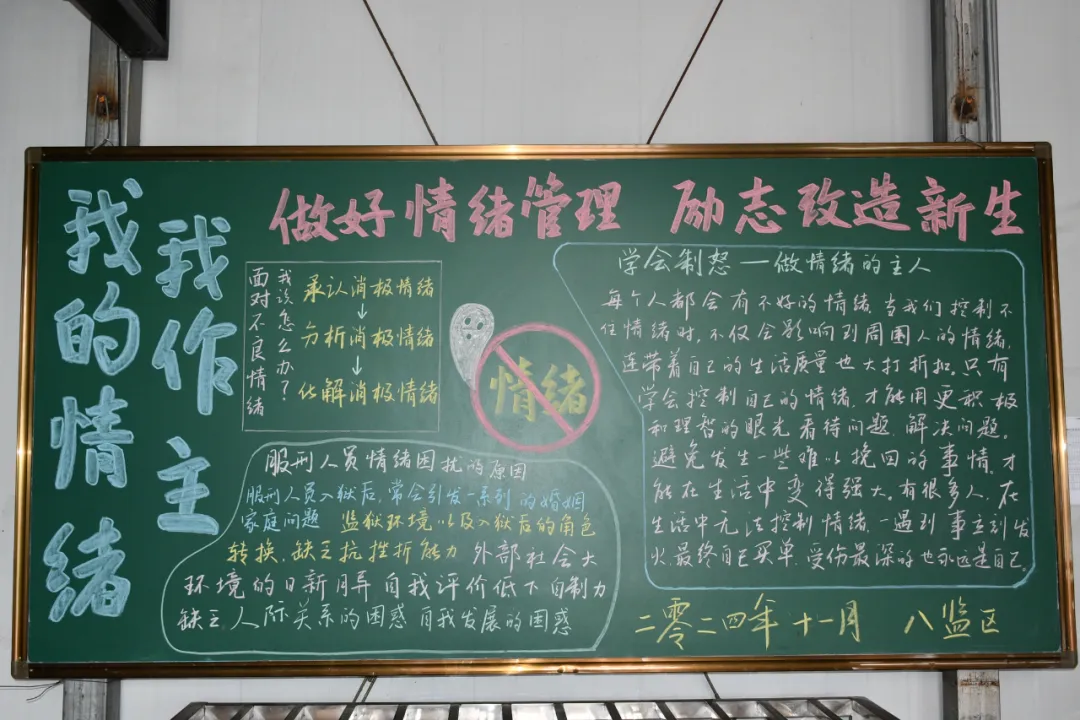 我的情绪
我作主
做好情绪管理 励志改造新生
面对不良情绪
我该怎么办?
承认消极情绪
↓
分析消极情绪
↓
化解消极情绪
情绪
服刑人员情绪困扰的原因
服刑人员入狱后.常会引发一系列的婚姻
家庭问题 监狱环境以及入狱后的角色
转换.缺乏抗挫折能力 外部社会大
环境的日新月异 自我评价低下 自制力
缺乏.人际关系的困惑 自我发展的困惑
学会制怒—做情绪的主人
每个人都会有不好的情绪.当我们控制不
住情绪时.不仅会影响到周围人的情绪.
连带着自己的生活质量也大打折扣.只有
学会控制自己的情绪.才能用更积极
和理智的眼光看待问题.解决问题。
避免发生一些难以挽回的事情.才
能在生活中变得强大.有很多人.在
生活中无法控制情绪.一遇到事立刻发
火.最终自己买单.受伤最深的也永远是自己.
二零二四年十一月 八监区